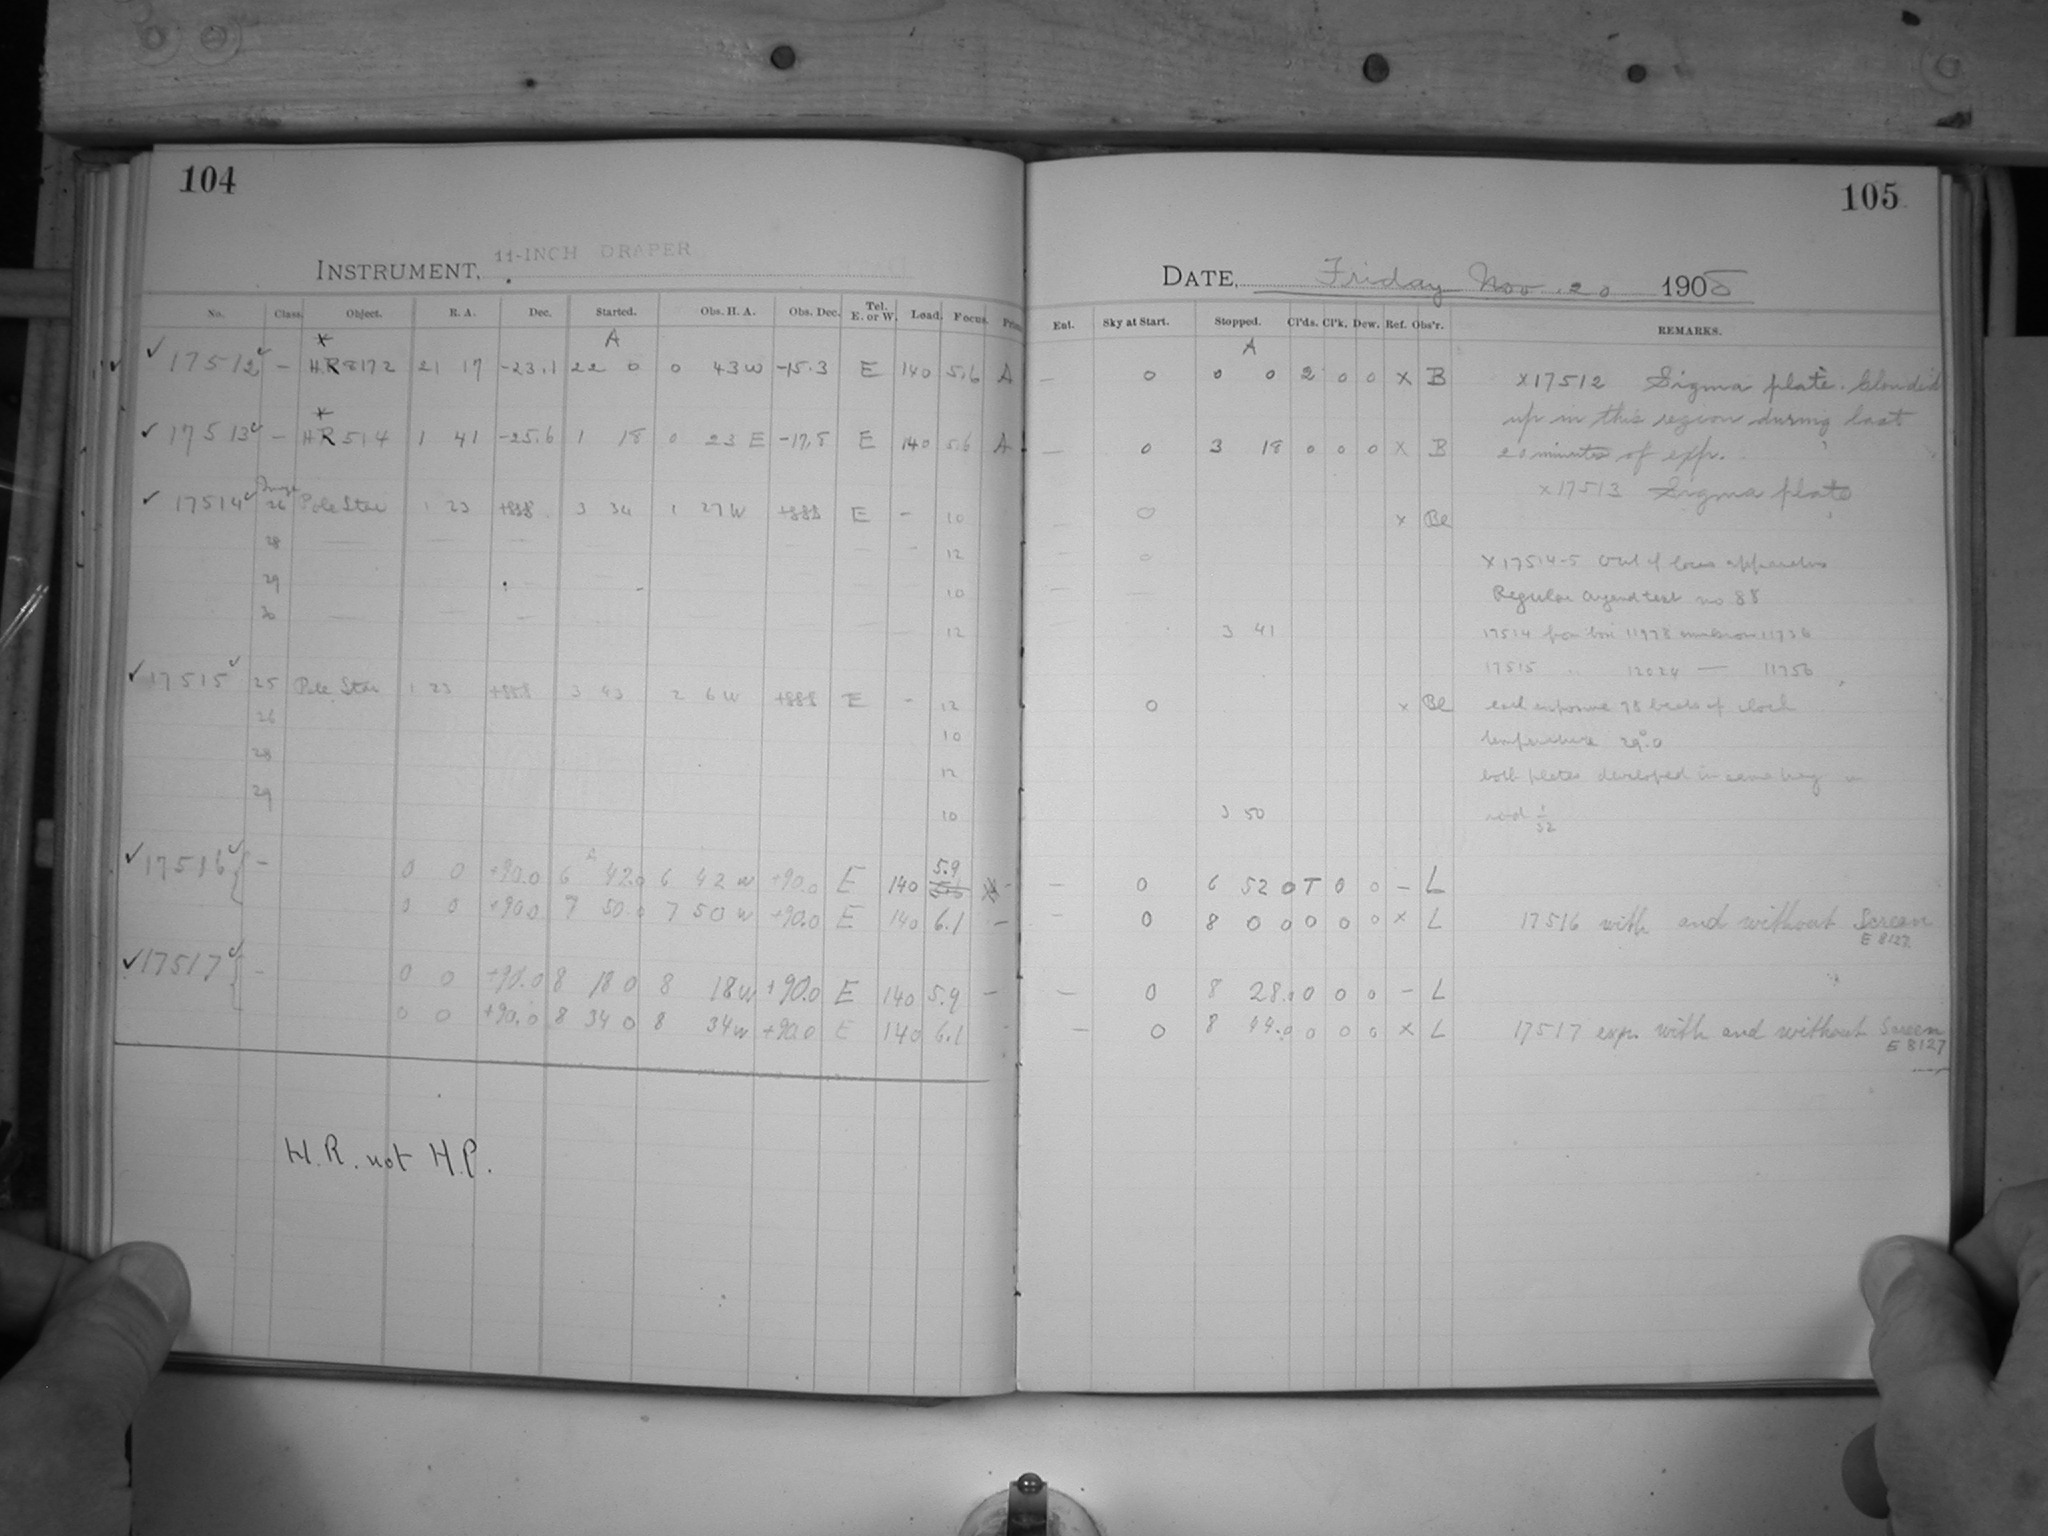 104
INSTRUMENT, 11-INCH DRAPER
No. Class. Object. R. A. Dec. Started. Obs. H. A. Obs. Dec. Tel. E. or W. Load. Focus.
A
✓ 17512 ✓ – H.R 8172 21 17 -23.1 22 0 0 43 W -15.3 E 140 5.6 A
✓ 17513 ✓ – H R 514 1 41 -25.6 1 18 0 23 E -17.8 E 140 5.6 A
✓ 17514 ✓ 26 Pole Star 1 23 +88.8 3 34 1 27 W +88.8 E – 10
28 12
29 10
30 12
✓ 17515 ✓ 25 Pole Star 1 23 +88.8 3 43 2 6 W +88.8 E – 12
26 10
28 12
29 10
✓ 17516 ✓ { – 0 0 +90.0 6 42.0 6 42 W +90.0 E 140 5.9 –
0 0 +90.0 7 50.0 7 50 W +90.0 E 140 6.1 –
✓ 17517 ✓ { – 0 0 +90.0 8 18 0 8 18 W +90.0 E 140 5.9 –
0 0 +90.0 8 34 0 8 34 W +90.0 E 140 6.1
H.R. not H.P.
105
DATE, Friday Nov. 20 1908
Ent. Sky at Start. Stopped. Cl'ds. Cl'k. Dew. Ref. Obs'r. REMARKS.
A
– 0 0 0 2 0 0 x B x 17512 Sigma plate. Clouded
up in this region during last
– 0 3 18 0 0 0 x B 20 minutes of exp.
x 17513 Sigma plate
0 x Be
0 x 17514-5 Out of focus apparatus
Regular test no 88
3 41 17514 from box 11978 emulsion 11736
17515 " 12024 — 11756
0 x Be each exposure 78 beats of clock
temperature 29°.0
both plates developed in same tray
3 50
– 0 6 52 0 T 0 0 – L
– 0 8 0 0 0 0 0 x L 17516 with and without Screen
E 8127
– 0 8 28.0 0 0 0 – L
– 0 8 44.0 0 0 0 x L 17517 exp. with and without Screen
E 8127